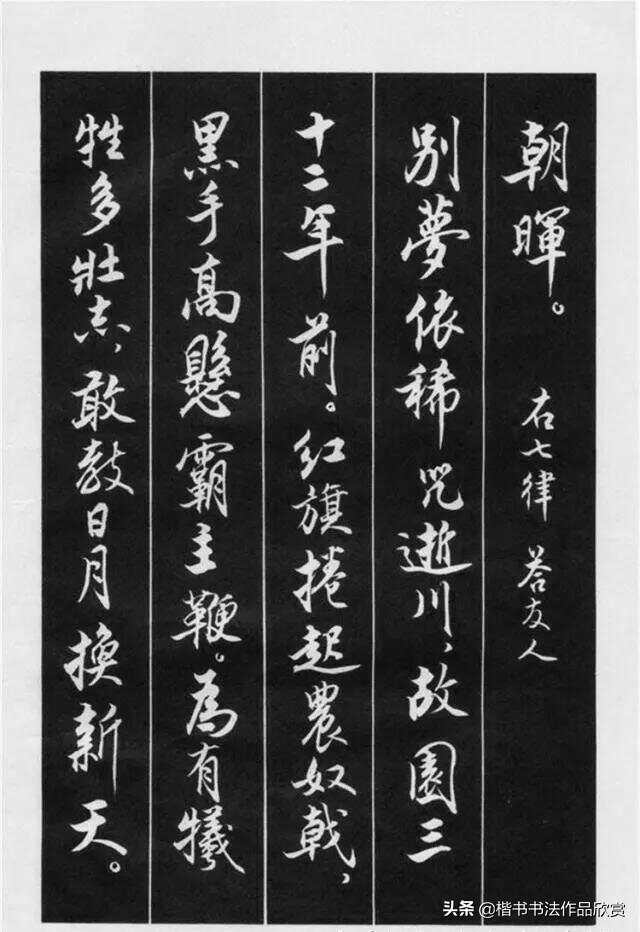 朝暉。 右七律 答友人
别夢依稀咒逝川，故園三
十二年前。红旗捲起農奴戟，
黑手高懸霸主鞭。為有犧
牲多壯志，敢教日月换新天。
头条 @楷书书法作品欣赏